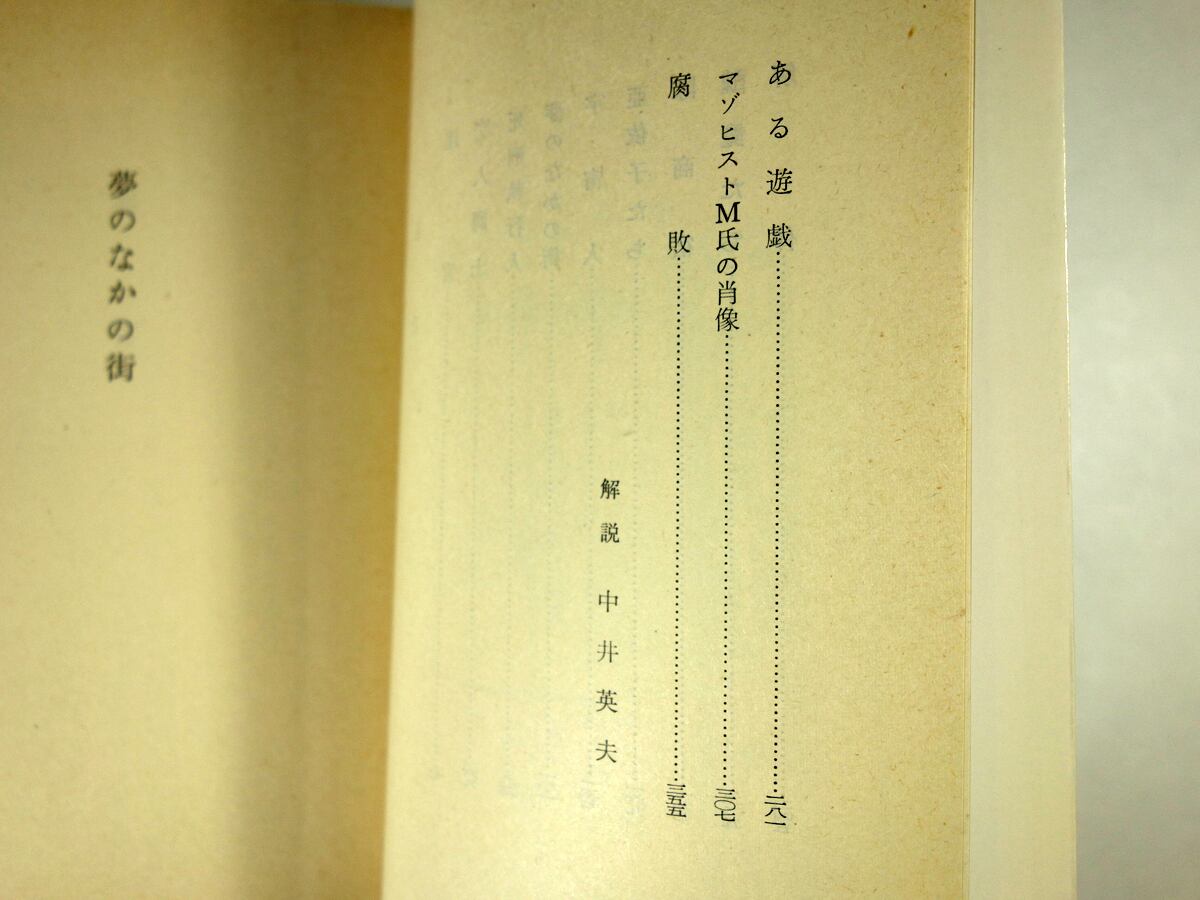 ある遊戯……二八一
マゾヒストM氏の肖像……三〇七
腐敗……三五五
解説 中井英夫
夢のなかの街